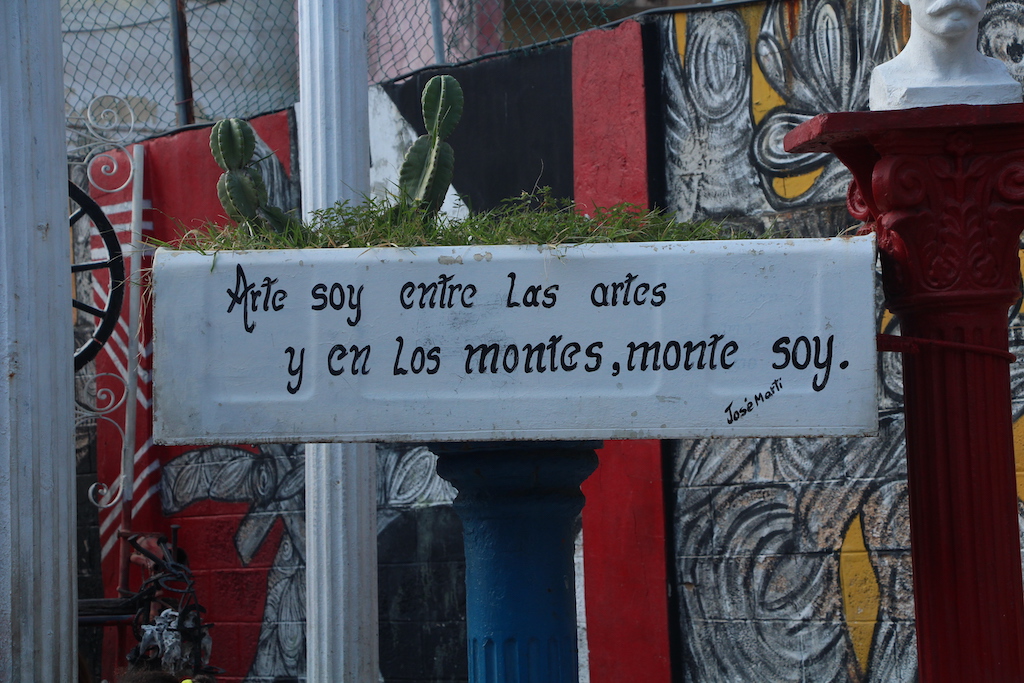 Arte soy entre Las artes
y en Los montes, monte soy.
José Martí